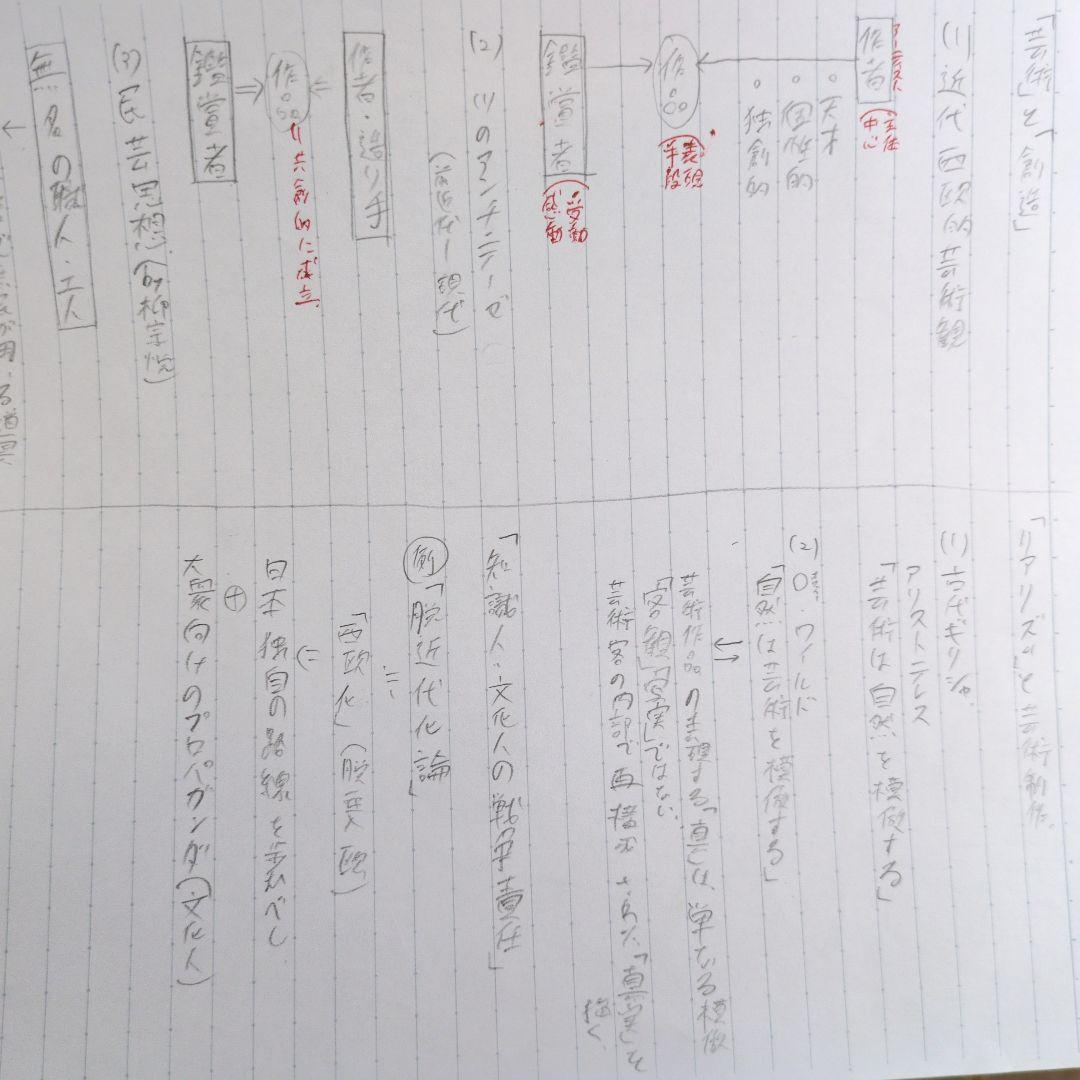 「芸術」と「創造」
(1) 近代西欧的芸術観
アーティスト
作者
(主体
中心)
天才
個性的
独創的
作品
(表現
手段)
鑑賞者
(受動
感動)
(2) (1)のアンチテーゼ
(前近代ー現代)
作者・造り手
作品
=共創的に成立
鑑賞者
(3) 民芸思想(by柳宗悦)
無名の職人・工人
「リアリズム」と芸術制作。
(1) 古代ギリシャ
アリストテレス
「芸術は自然を模倣する」
(2) O・ワイルド
「自然は芸術を模倣する」
芸術作品の表現する「真」は、単なる模倣
「客観」「写実」ではない
芸術家の内部で再構成された「真実」を
描く
「知識人・文化人の戦争責任」
例 「脱近代化論」
「西欧化」(脱亜入欧)
日本独自の路線を歩むべし
⊕
大衆向けのプロパガンダ(文化人)